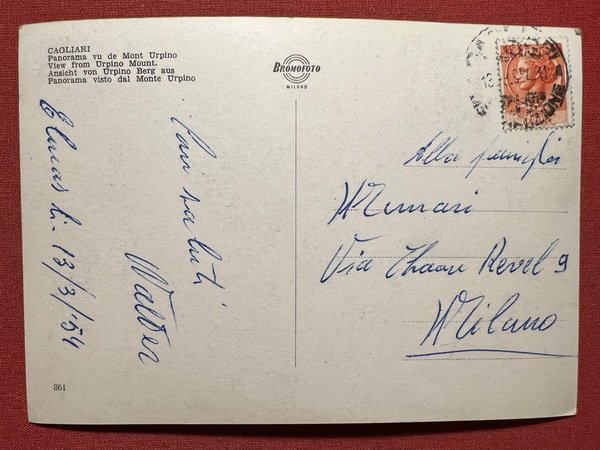 CAGLIARI
Panorama vu de Mont Urpino
View from Urpino Mount.
Ansicht von Urpino Berg aus
Panorama visto dal Monte Urpino
BROMOFOTO
MILANO
Elmas li 13/3/54
Cari saluti
Walter
Alla famiglia
Via Thaon Revel 9
Milano
861